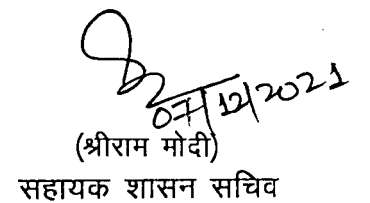 07/12/2021
(श्रीराम मोदी)
सहायक शासन सचिव